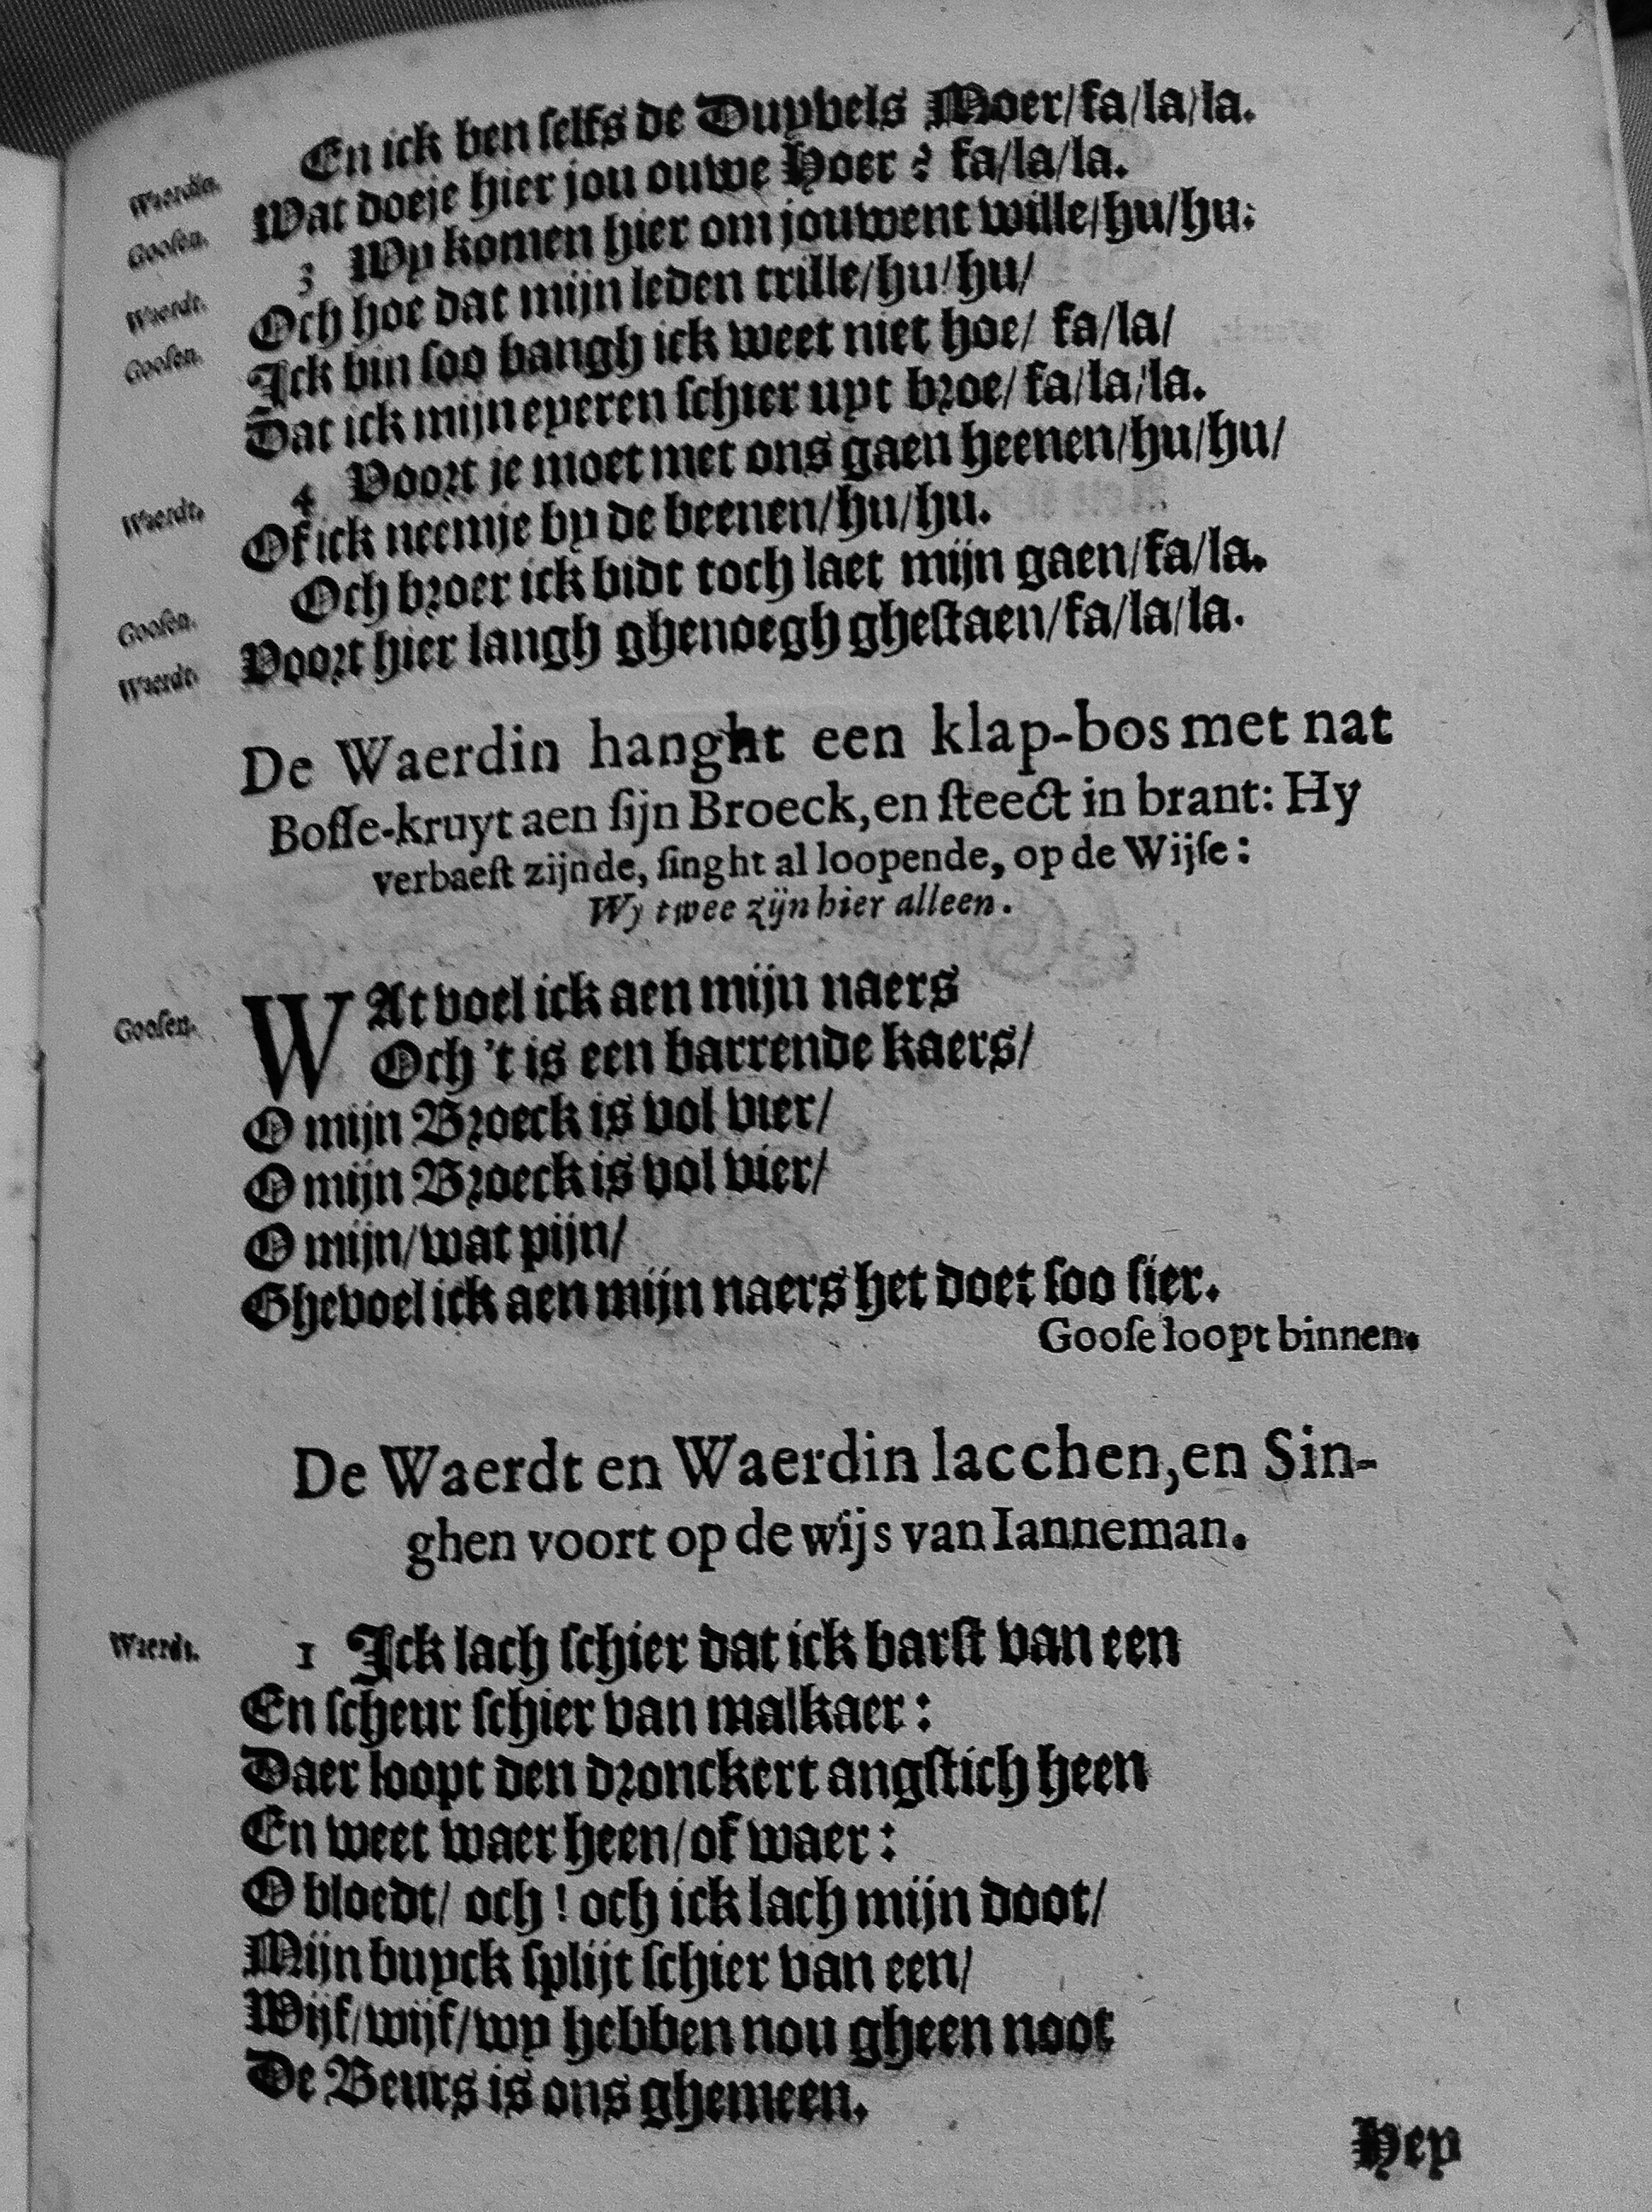 Waerdin. En ick ben selfs de Duyvels Moer/fa/la/la.
Goosen. Wat doeje hier jou ouwe Hoer? fa/la/la.
Waerdt. 3 Wy komen hier om jouwent wille/hu/hu:
Goosen. Och hoe dat mijn leden trille/hu/hu/
Ick bin soo bangh ick weet niet hoe/ fa/la/
Dat ick mijn eyeren schier uyt broe/ fa/la/la.
Waerdt. 4 Voort je moet met ons gaen heenen/hu/hu/
Of ick neemje by de beenen/hu/hu.
Goosen. Och broer ick bidt toch laet mijn gaen/fa/la.
Waerdt. Voort hier langh ghenoegh ghestaen/fa/la/la.
De Waerdin hanght een klap-bos met nat
Bosse-kruyt aen sijn Broeck, en steect in brant: Hy
verbaest zijnde, singht al loopende, op de Wijse:
Wy twee zijn hier alleen.
Goosen. WAt voel ick aen mijn naers
Och 't is een barrende kaers/
O mijn Broeck is vol vier/
O mijn Broeck is vol vier/
O mijn/wat pijn/
Ghevoel ick aen mijn naers het doet soo sier.
Goose loopt binnen.
De Waerdt en Waerdin lacchen, en Sin-
ghen voort op de wijs van Ianneman.
Waerdt. 1 Ick lach schier dat ick barst van een
En scheur schier van malkaer:
Daer loopt den dronckert angstich heen
En weet waer heen/of waer:
O bloedt/ och! och ick lach mijn doot/
Mijn buyck splijt schier van een/
Wijf/wijf/wy hebben nou gheen noot
De Beurs is ons ghemeen.
Hey